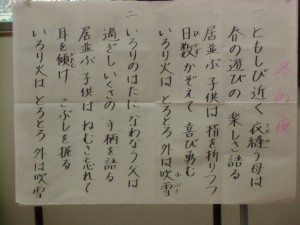 冬の夜
一 ともしび近く 衣縫う母は
春の遊びの 楽しさ語る
居並ぶ子供は 指を折りつつ
日数かぞえて 喜び勇む
いろり火は とろとろ 外は吹雪
二 いろりのはたに なわなう父は
過ぎし いくさの 手柄を語る
居並ぶ子供は ねむさ忘れて
耳を傾け こぶしを握る
いろり火は とろとろ 外は吹雪